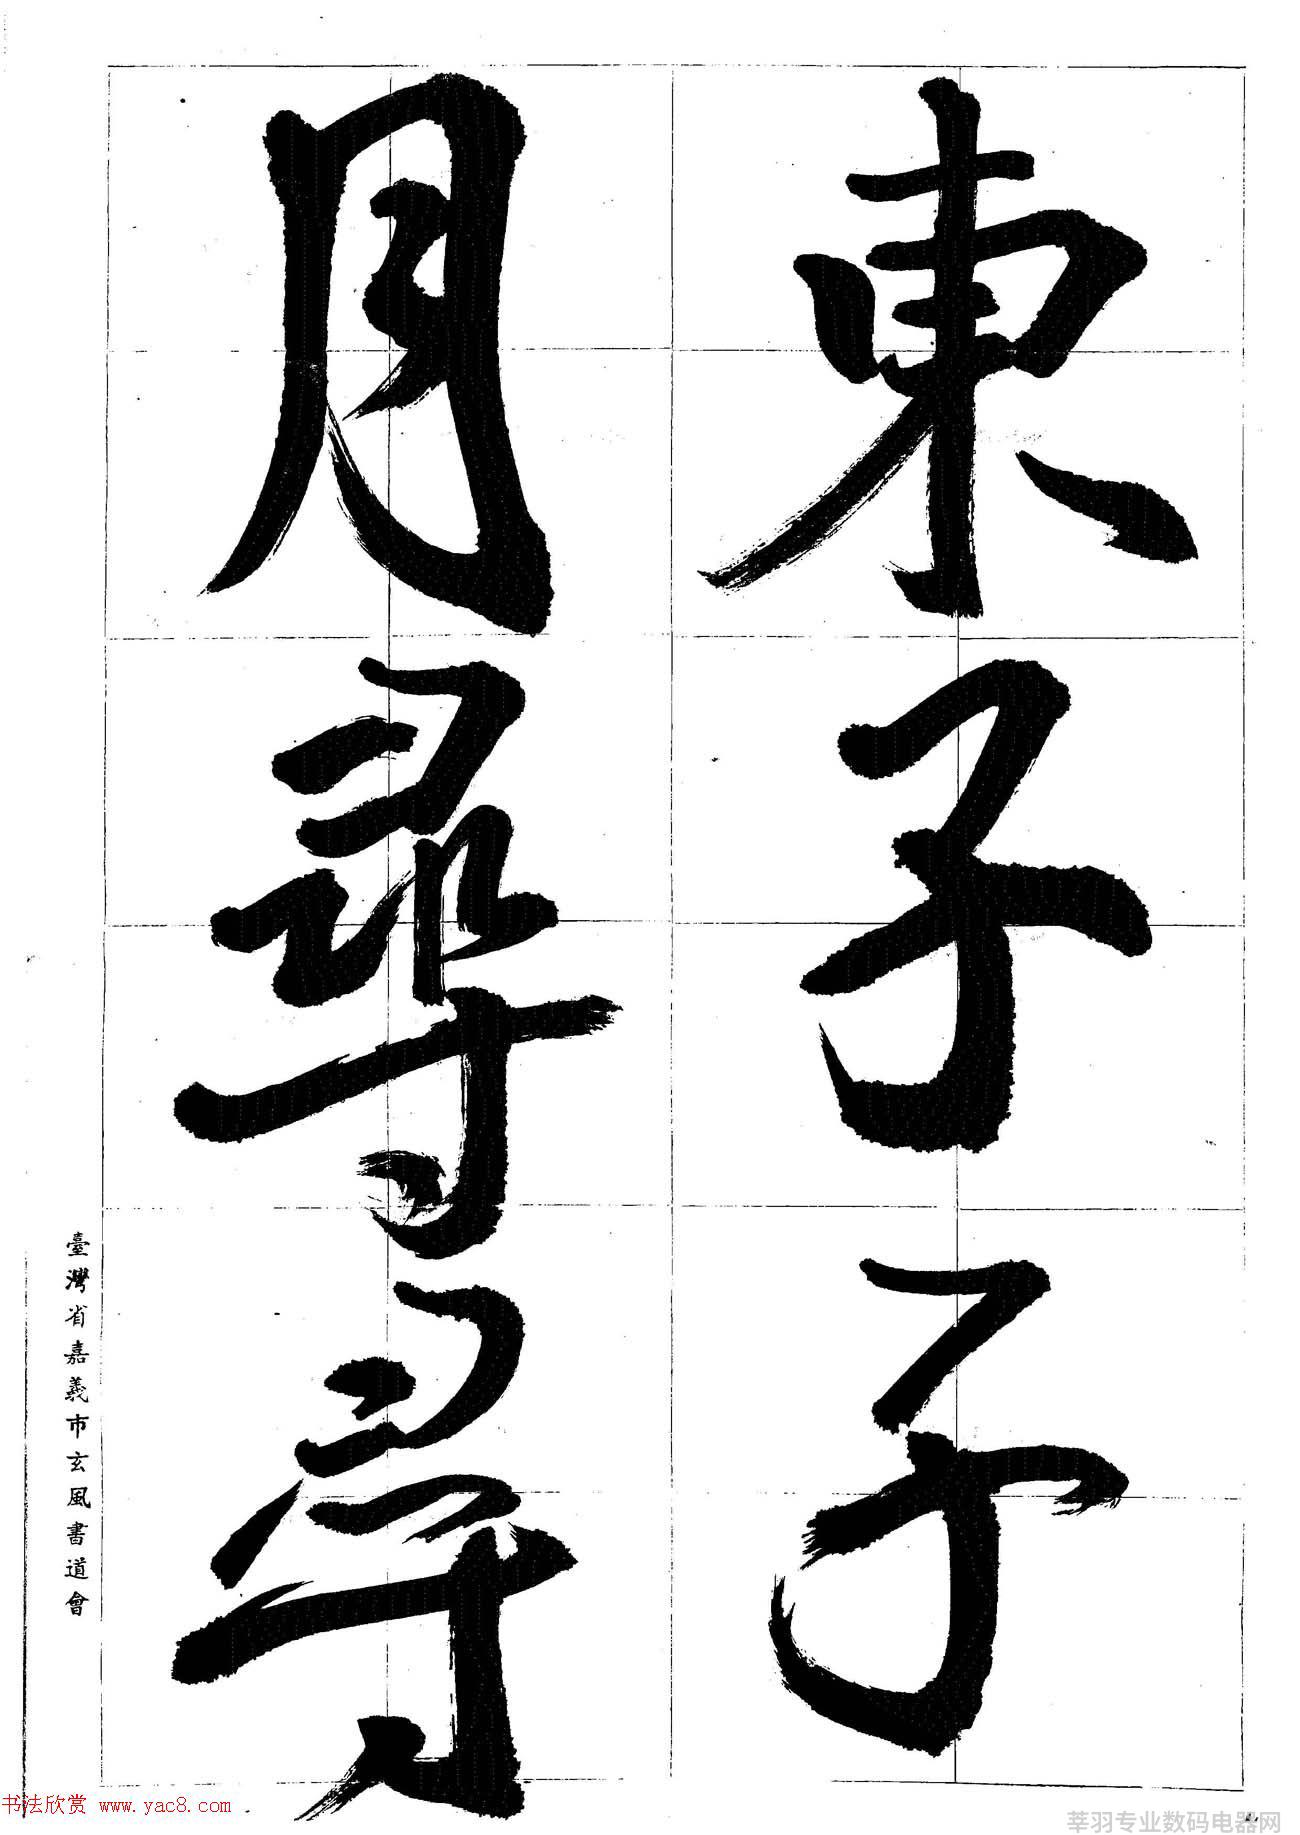 東子子
月尋尋
臺灣省嘉義市玄風書道會
书法欣赏 www.yac8.com
莘羽专业数码电器网